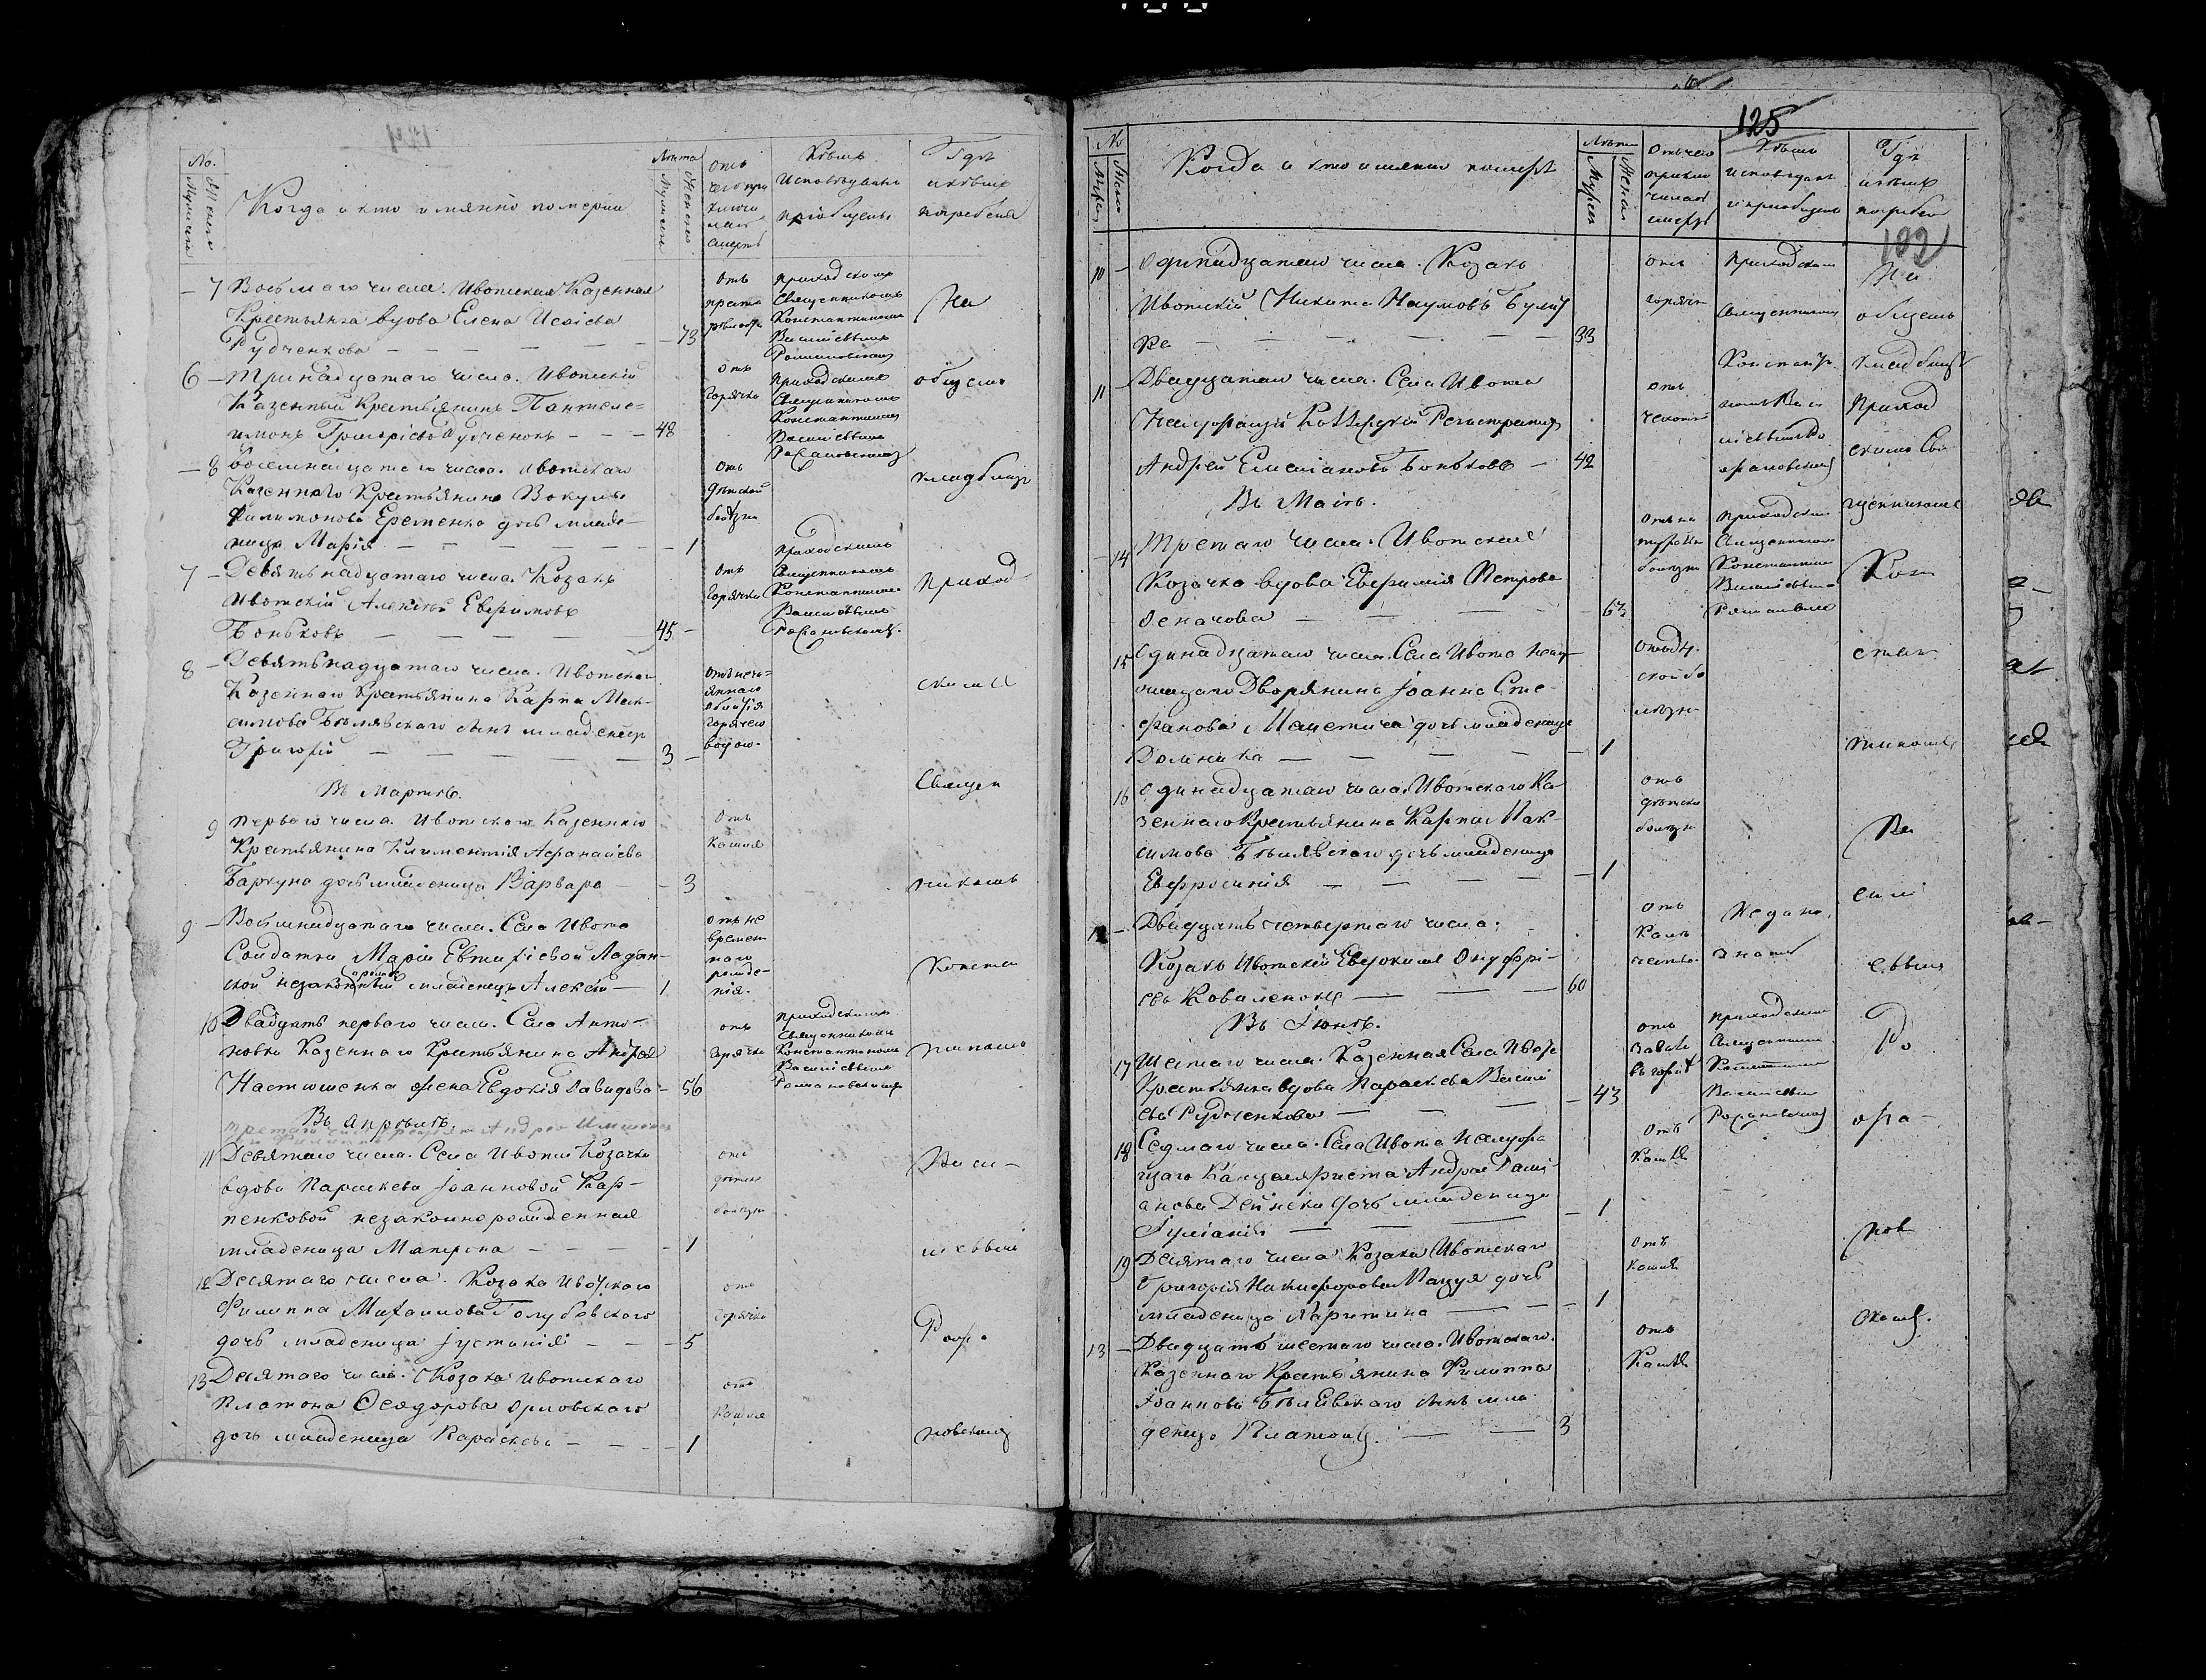 No.
Когда и кто имянно померли
Лета
Мужеска
Женска
отъ
чего при
ключи
лась
смерть
Кѣмъ
исповѣдываны
пріобщены
Гдѣ
и кѣмъ
погребены
7 Восьмаго числа. Ивотская Казенная
Крестьянка вдова Елена Исаіева
Рудченкова — 73
отъ
приходскимъ
Священникомъ
Константиномъ
Василіевымъ
Романовскимъ
На
6 Тринадцатаго числа. Ивотскій
Казенный Крестьянинъ Пантеле-
имонъ Григоріевъ Рудченокъ — 48
отъ
горячки
приходскимъ
Священникомъ
Константиномъ
Василіевымъ
Романовскимъ
общемъ
8 Осемнадцатаго числа. Ивотскаго
Казеннаго Крестьянина Вакулы
Филимонова Еременка дочь младе-
ница Марія — 1
отъ
дѣтской
болѣзни
кладбищѣ
7 Девятьнадцатаго числа. Козакъ
Ивотскій Алексѣй Евфимовъ
Боньковъ — 45
отъ
горячки
приходскимъ
Священникомъ
Константиномъ
Василіевымъ
Романовскимъ
приход
8 Девятьнадцатаго числа. Ивотскаго
Казеннаго Крестьянина Карпа Мак-
симова Бѣлявскаго сынъ младенецъ
Григорій — 3
отъ неча-
яннаго
обліятія
горячею
водою.
скимъ
Въ Мартѣ.
Священ
9 Перваго числа. Ивотскаго Казеннаго
Крестьянина Климентія Афанасіева
Баркуна дочь младеница Варвара — 3
отъ
кашля
никомъ
9 Восьмнадцатаго числа. Села Ивота
Солдатки Маріи Евтихіевой Ладын-
ской незаконный младенецъ Алексѣй — 1
отъ не
времен
наго
рожде-
нія.
Констан
10 Двадцать перваго числа. Села Анто-
новки Казеннаго Крестьянина Андрея
Настюшенка жена Евдокія Давидова — 56
отъ
горячки
приходскимъ
Священникомъ
Константиномъ
Василіевымъ
Романовскимъ
тиномъ
Въ Апрѣлѣ.
11 Девятаго числа. Села Ивота Козачки
вдовы Параскевы Іоанновой Кар-
пенковой незаконнорожденная
младеница Матрона — 1
отъ
дѣтской
болѣзни
Васи-
ліевымъ
12 Десятаго числа. Козака Ивотскаго
Филиппа Михаилова Голубовскаго
дочь младеница Іустинія — 5
отъ
горячки
Рома
13 Десятаго числа. Козака Ивотскаго
Платона Ѳеодорова Орловскаго
дочь младеница Параскева — 1
отъ
кашля
новскимъ
125
102
Когда и кто имянно померъ
Лѣта
Мужеска
Женска
Отъ чего
приклю
чилась
смерть
Кѣмъ
исповѣданъ
и пріобщенъ
Гдѣ
и кѣмъ
погребенъ
10 Одинадцатаго числа. Козакъ
Ивотскій Никита Наумовъ
33
отъ
горячки
Приходскимъ
Священникомъ
На
общемъ
11 Двадцатаго числа. Села Ивота
Коллежскій Регистраторъ
Андрей Емеліановъ Боньковъ — 42
отъ
чехотки
Константи
номъ Васи
ліевымъ Ро
мановскимъ
кладбищѣ
приход
скимъ Свя
Въ Маіѣ.
щенникомъ
14 Третаго числа. Ивотская
Козачка вдова Евфимія Петрова
63
болѣзни
приходскимъ
Священникомъ
Константиномъ
Василіевымъ
Романовскимъ
Кон
15 Одинадцатаго числа. Села Ивота
Дворянина Іоанна Сте-
фанова дочь младеница
Домникія — 1
отъ дѣт
ской бо
лѣзни
стан
тиномъ
16 Одинадцатаго числа. Ивотскаго Ка-
зеннаго Крестьянина Карпа Мак-
симова Бѣлявскаго дочь младеница
Евфросинія — 1
отъ
дѣтской
болѣзни
Ва
12 Двадцать четвертаго числа.
Козакъ Ивотскій Евдокимъ Онуфрі-
евъ Коваленокъ — 60
отъ
силі
евымъ
Въ Іюнѣ.
17 Шестаго числа. Казенная Села Ивота
Крестьянка вдова Параскева Василі
ева Рудченкова — 43
отъ
приходскимъ
Священникомъ
Константиномъ
Василіевымъ
Романовскимъ
Ро
18 Седмаго числа. Села Ивота
Канцеляриста Андрея
Дейнеки дочь младеница
Іуліанія — 1
отъ
кашля
ма-
19 Десятаго числа Козака Ивотскаго
Григорія Никифорова Пацуя дочь
младеница Харитина — 1
отъ
кашля
нов
13 Двадцать шестаго числа. Ивотскаго
Казеннаго Крестьянина Филиппа
Іоаннова Бѣлевскаго сынъ мла
денецъ Платонъ — 3
отъ
кашля
скимъ.